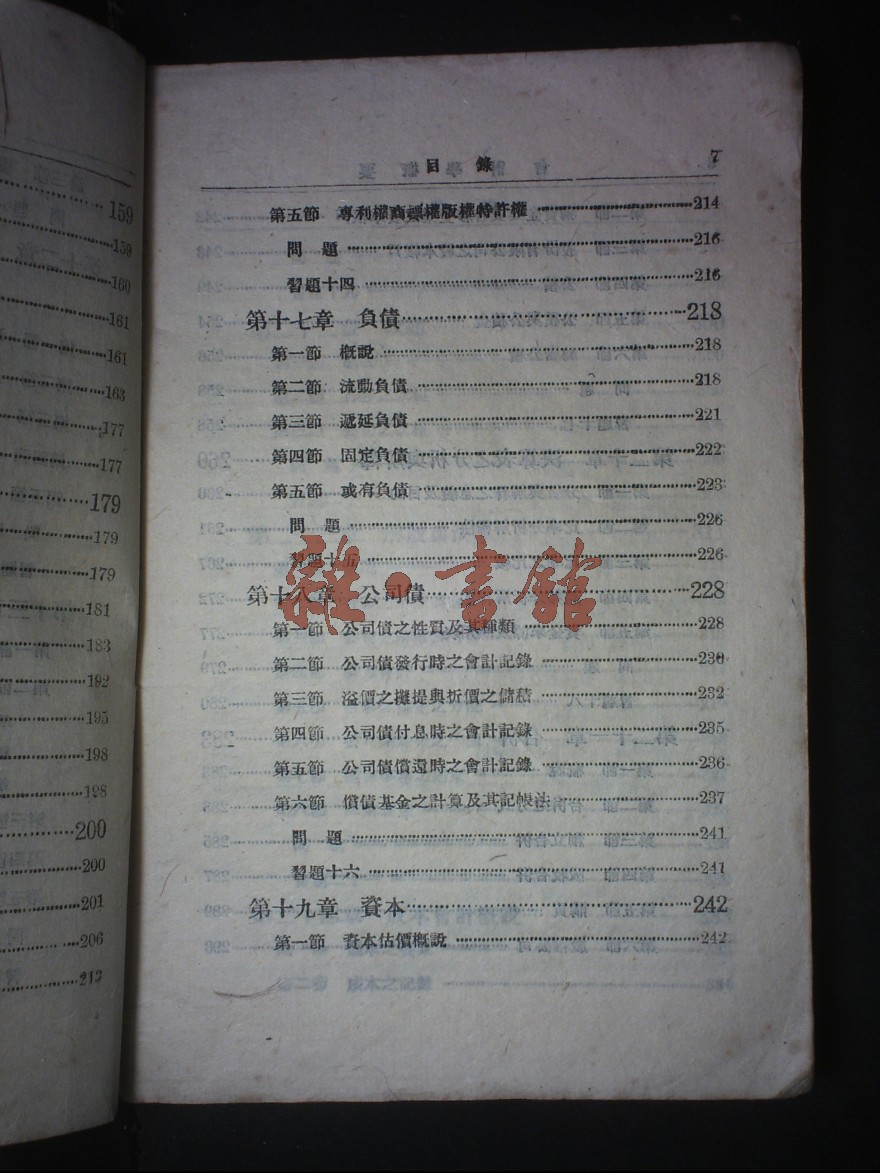 159
159
160
161
161
163
177
177
179
179
179
181
183
192
195
198
198
200
200
201
206
213
目錄 7
第五節 專利權商標權版權特許權 214
問題 216
習題十四 216
第十七章 負債 218
第一節 概說 218
第二節 流動負債 218
第三節 遞延負債 221
第四節 固定負債 222
第五節 或有負債 223
問題 226
習題十五 226
第十八章 公司債 228
第一節 公司債之性質及其種類 228
第二節 公司債發行時之會計記錄 230
第三節 溢價之攤提與折價之儲積 232
第四節 公司債付息時之會計記錄 235
第五節 公司債償還時之會計記錄 236
第六節 償債基金之計算及其記帳法 237
問題 241
習題十六 241
第十九章 資本 242
第一節 資本估價概說 242
雜·書館